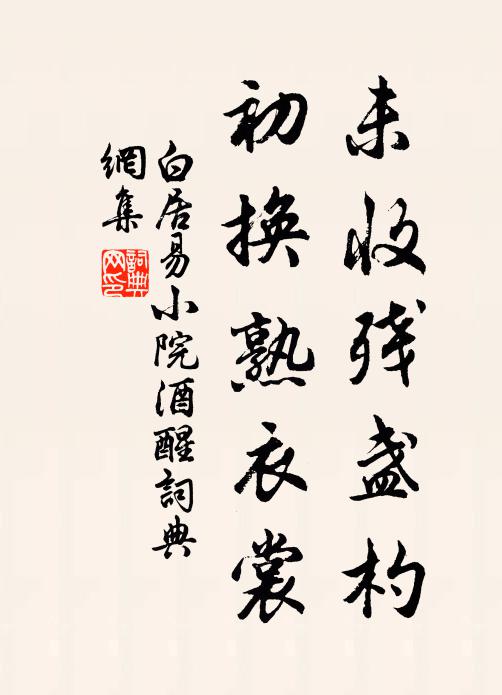 未收残盏杓
初换熟衣裳
白居易小院酒醒詞典
網集
詞典
网印